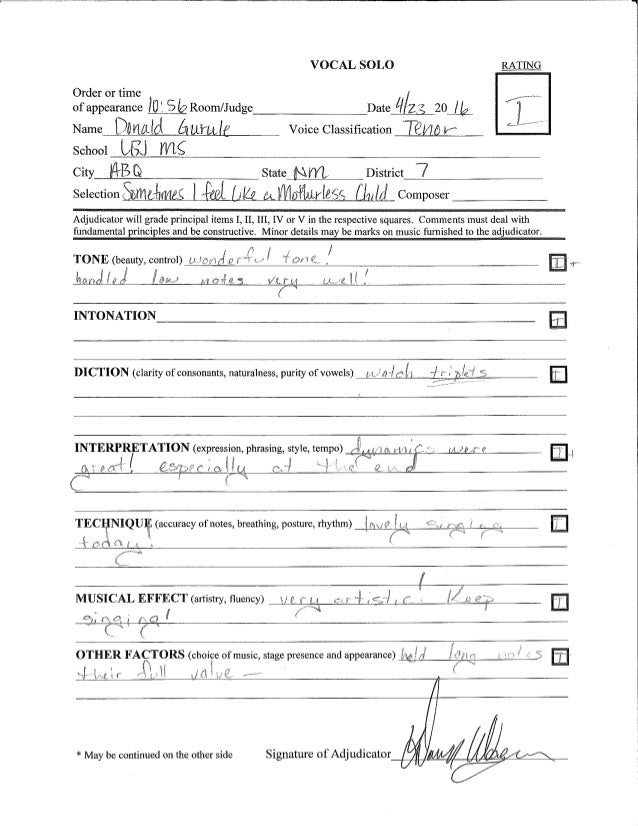 VOCAL SOLO RATING
Order or time
of appearance 10:56 Room/Judge Date 4/23 20 16 I
Name Donald Gurule Voice Classification Tenor
School LBJ MS
City ABQ State NM District 7
Selection Sometimes I feel Like a Motherless Child Composer
Adjudicator will grade principal items I, II, III, IV or V in the respective squares. Comments must deal with
fundamental principles and be constructive. Minor details may be marks on music furnished to the adjudicator.
TONE (beauty, control) wonderful tone! I+
handled low notes very well!
INTONATION I
DICTION (clarity of consonants, naturalness, purity of vowels) watch triplets I
INTERPRETATION (expression, phrasing, style, tempo) dynamics were I+
great! especially at the end
TECHNIQUE (accuracy of notes, breathing, posture, rhythm) lovely singing I
today!
MUSICAL EFFECT (artistry, fluency) very artistic! Keep I
singing!
OTHER FACTORS (choice of music, stage presence and appearance) held long notes I
their full value —
* May be continued on the other side Signature of Adjudicator